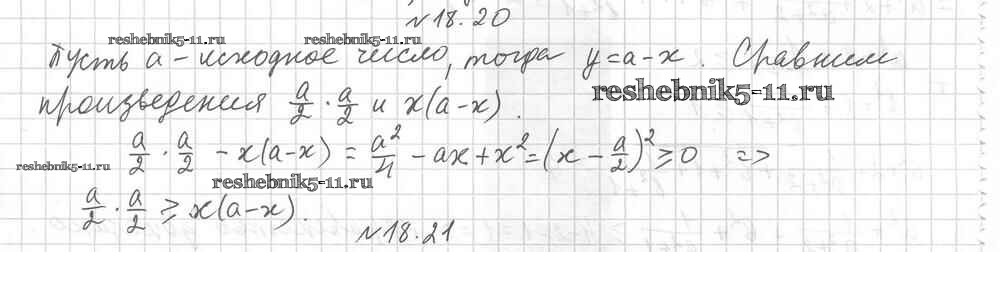 №18.20
reshebnik5-11.ru reshebnik5-11.ru
Пусть a - исходное число, тогда y = a - x. Сравним
произведения a/2 · a/2 и x(a - x).
reshebnik5-11.ru
a/2 · a/2 - x(a - x) = a²/4 - ax + x² = (x - a/2)² ≥ 0 =>
reshebnik5-11.ru reshebnik5-11.ru
a/2 · a/2 ≥ x(a - x).
№18.21